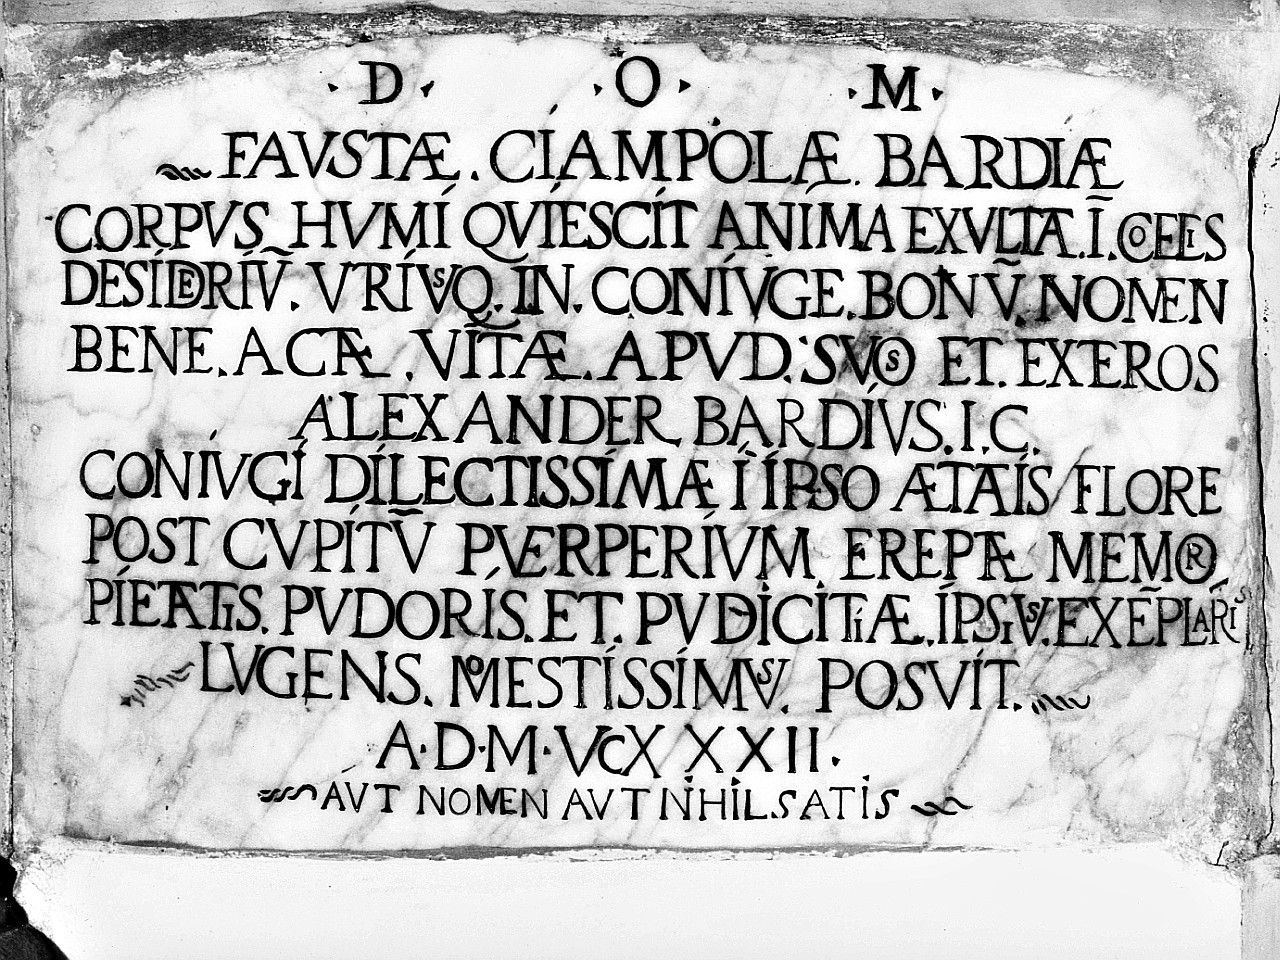 · D · · O · · M ·
FAVSTÆ . CIAMPOLÆ . BARDIÆ
CORPVS HVMI QVIESCIT ANIMA EXVLTA . Ī . COELIS
DESIDERIṼ . VRIVSQ . IN . CONIVGE . BONṼ . NOMEN
BENE . ACTÆ . VITÆ . APVD . SVOS ET . EXTEROS
ALEXANDER BARDIVS . I . C .
CONIVGI DILECTISSIMÆ Ī IPSO ÆTATIS FLORE
POST CVPITṼ PVERPERIVM . EREPTÆ MEMOR
PIETATIS . PVDORIS . ET . PVDICITIÆ . IPSIVS . EXẼPLARIS
LVGENS . MOESTISSIMVS . POSVIT .
A · D · M · VCXXXII .
AVT NOMEN AVT NIHIL . SATIS